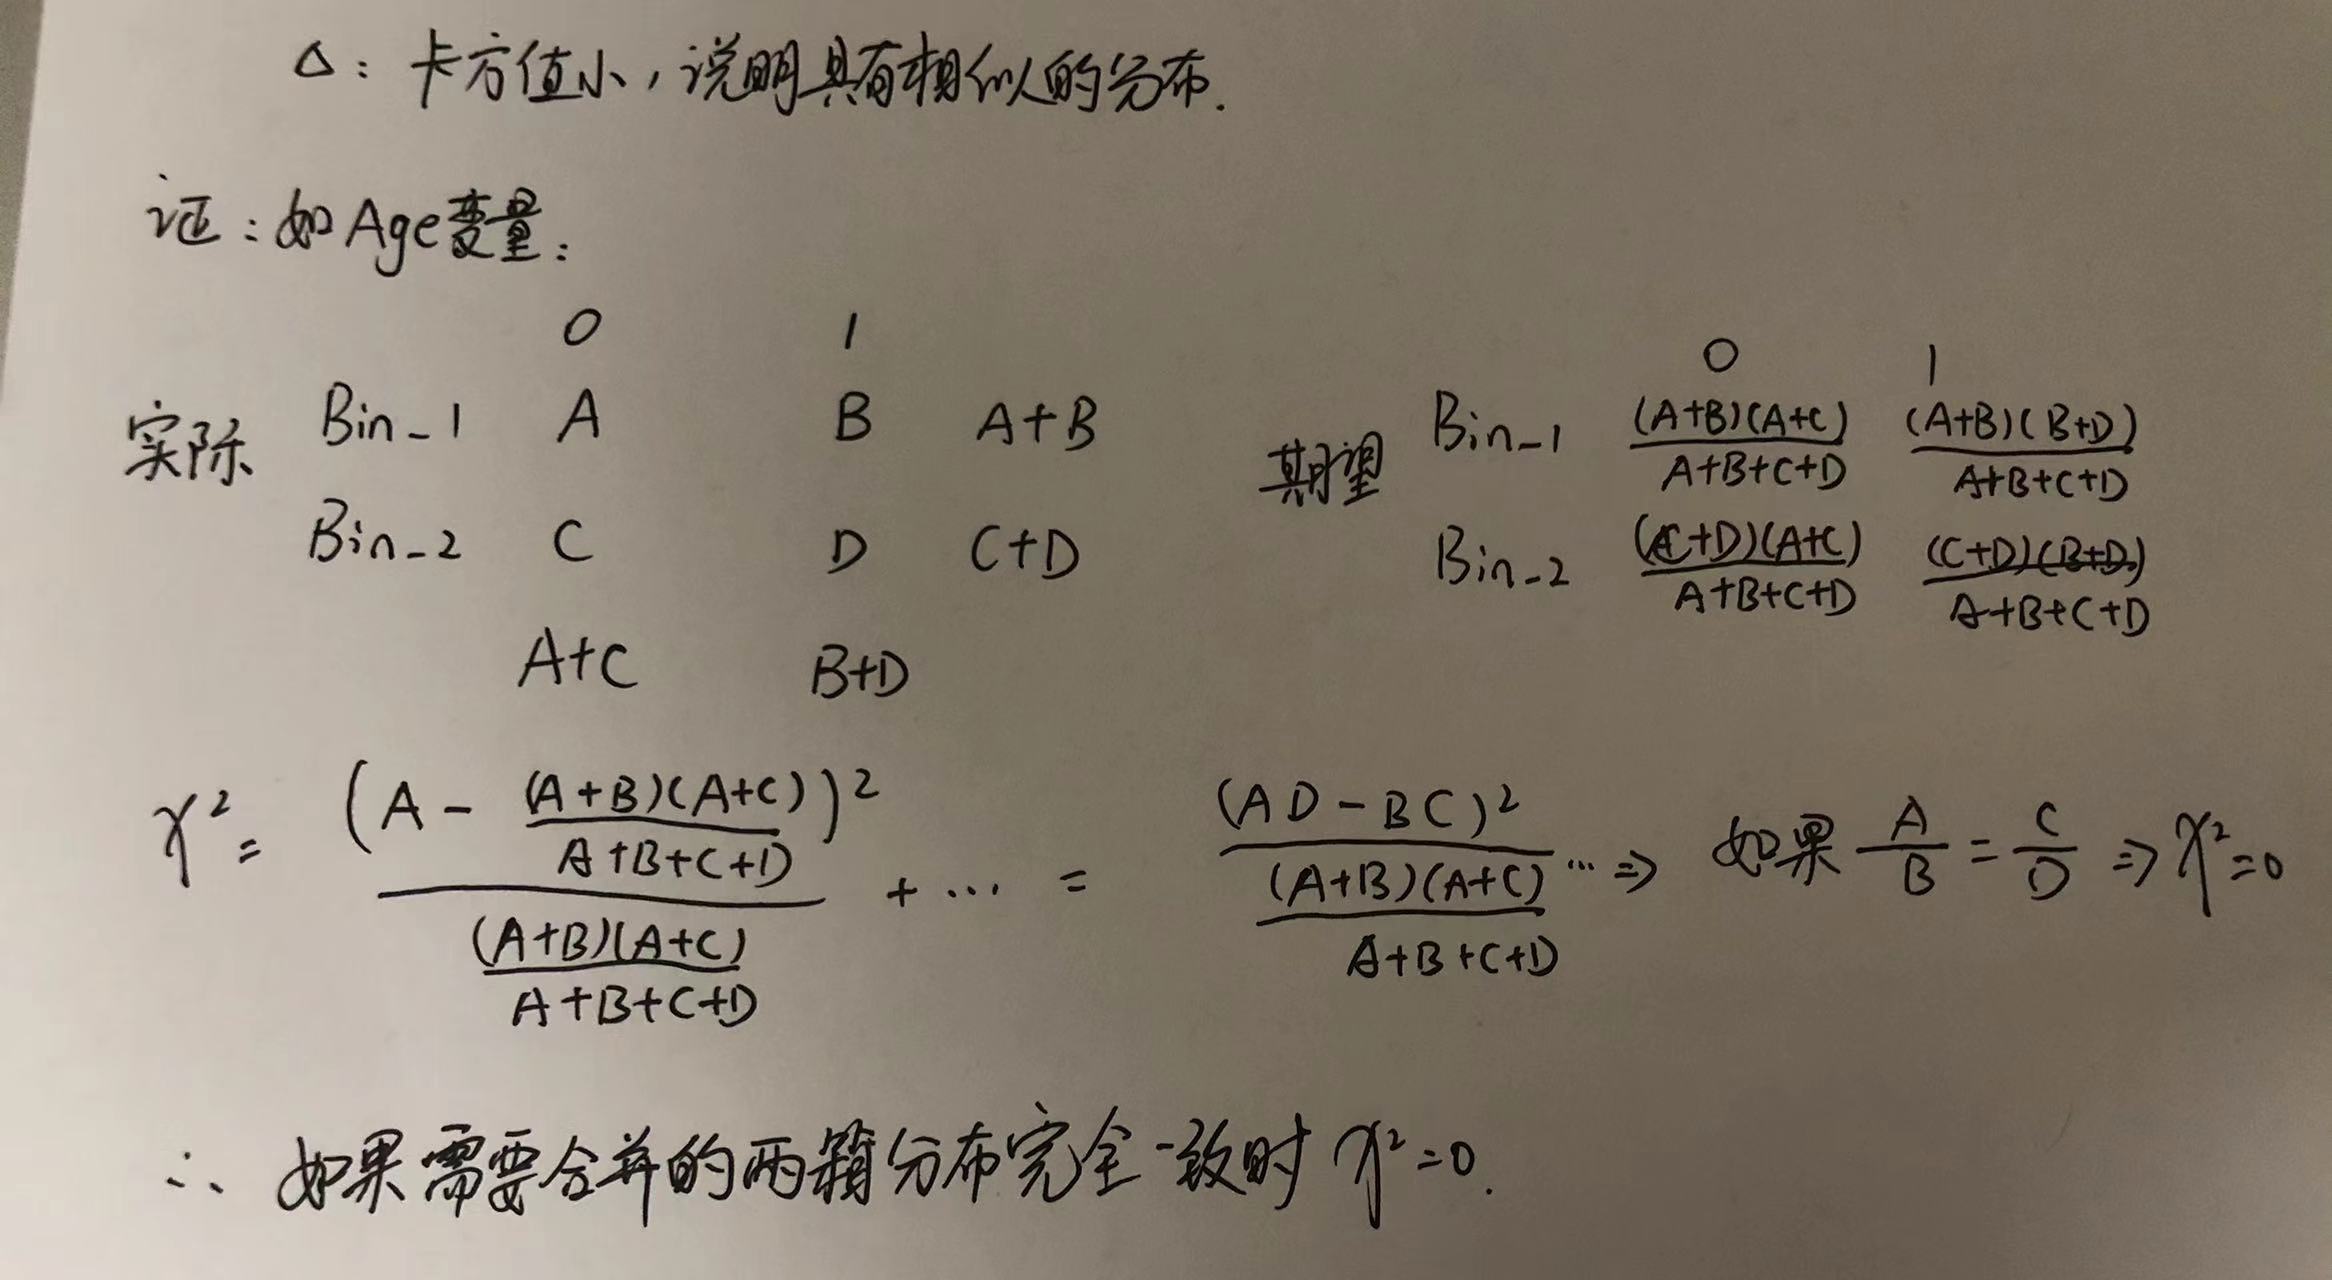 △：卡方值小，说明具有相似的分布.
证：如Age变量：
0 1
实际 Bin-1 A B A+B
Bin-2 C D C+D
A+C B+D
0 1
期望 Bin-1 (A+B)(A+C)/A+B+C+D (A+B)(B+D)/A+B+C+D
Bin-2 (C+D)(A+C)/A+B+C+D (C+D)(B+D)/A+B+C+D
χ²= (A - (A+B)(A+C)/A+B+C+D)² / (A+B)(A+C)/A+B+C+D + ... = (AD-BC)² / (A+B)(A+C)/A+B+C+D ... ⇒ 如果 A/B = C/D ⇒ χ²=0
∴ 如果需要合并的两箱分布完全一致时 χ²=0.